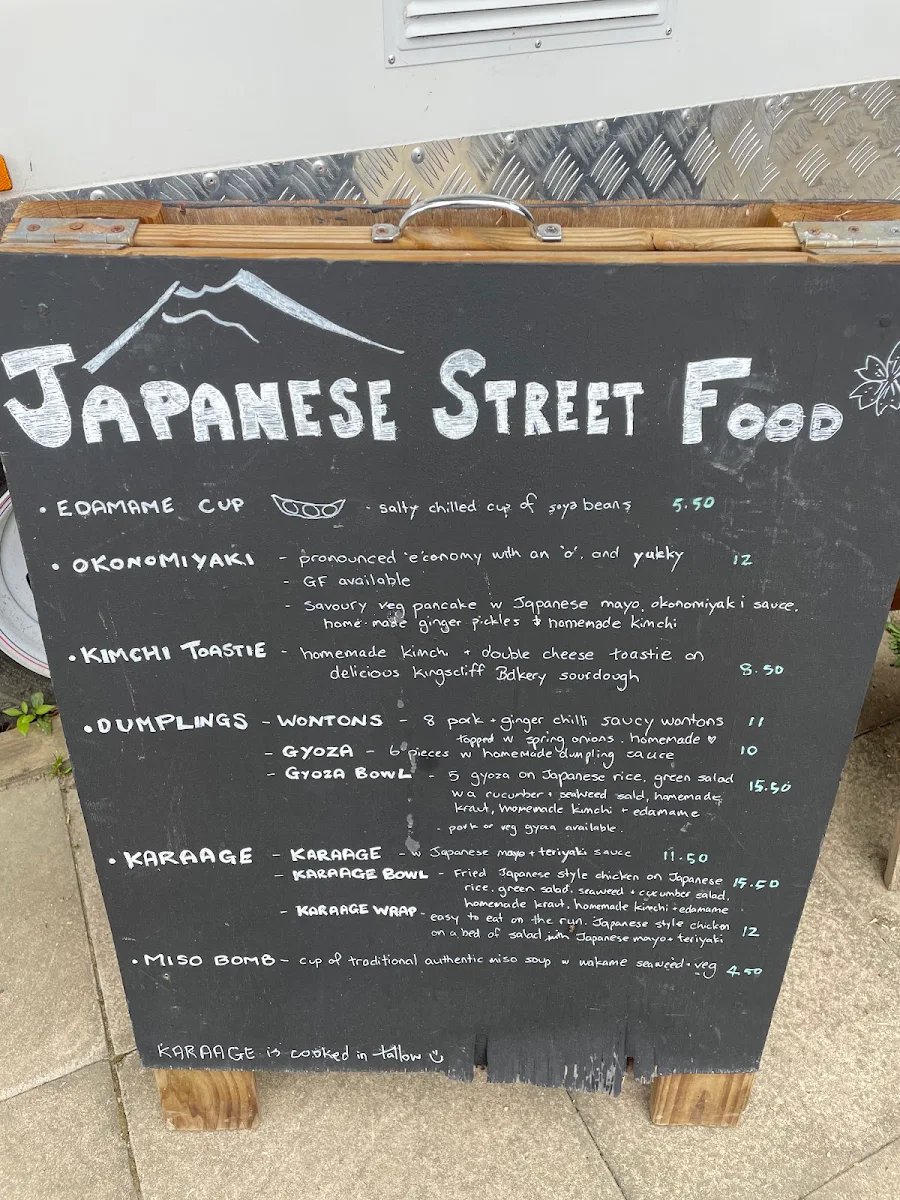 JAPANESE STREET FOOD
• EDAMAME CUP - salty chilled cup of soya beans 5.50
• OKONOMIYAKI - pronounced 'e'conomy with an 'o', and yukky 12
- GF available
- Savoury veg pancake w Japanese mayo, okonomiyaki sauce,
home-made ginger pickles + homemade kimchi
• KIMCHI TOASTIE - homemade kimchi + double cheese toastie on
delicious Kingscliff Bakery sourdough 8.50
• DUMPLINGS - WONTONS - 8 pork + ginger chilli saucy wontons 11
topped w spring onions. homemade ♥
- GYOZA - 6 pieces w homemade dumpling sauce 10
- GYOZA BOWL - 5 gyoza on Japanese rice, green salad
w a cucumber + seaweed sald, homemade 15.50
kraut, homemade kimchi + edamame
- pork or veg gyoza available.
• KARAAGE - KARAAGE - w Japanese mayo + teriyaki sauce 11.50
- KARAAGE BOWL - Fried Japanese style chicken on Japanese 15.50
rice, green salad, seaweed + cucumber salad,
homemade kraut, homemade kimchi + edamame
- KARAAGE WRAP - easy to eat on the run. Japanese style chicken
on a bed of salad with Japanese mayo + teriyaki 12
• MISO BOMB - cup of traditional authentic miso soup w wakame seaweed + veg 4.50
KARAAGE is cooked in tallow